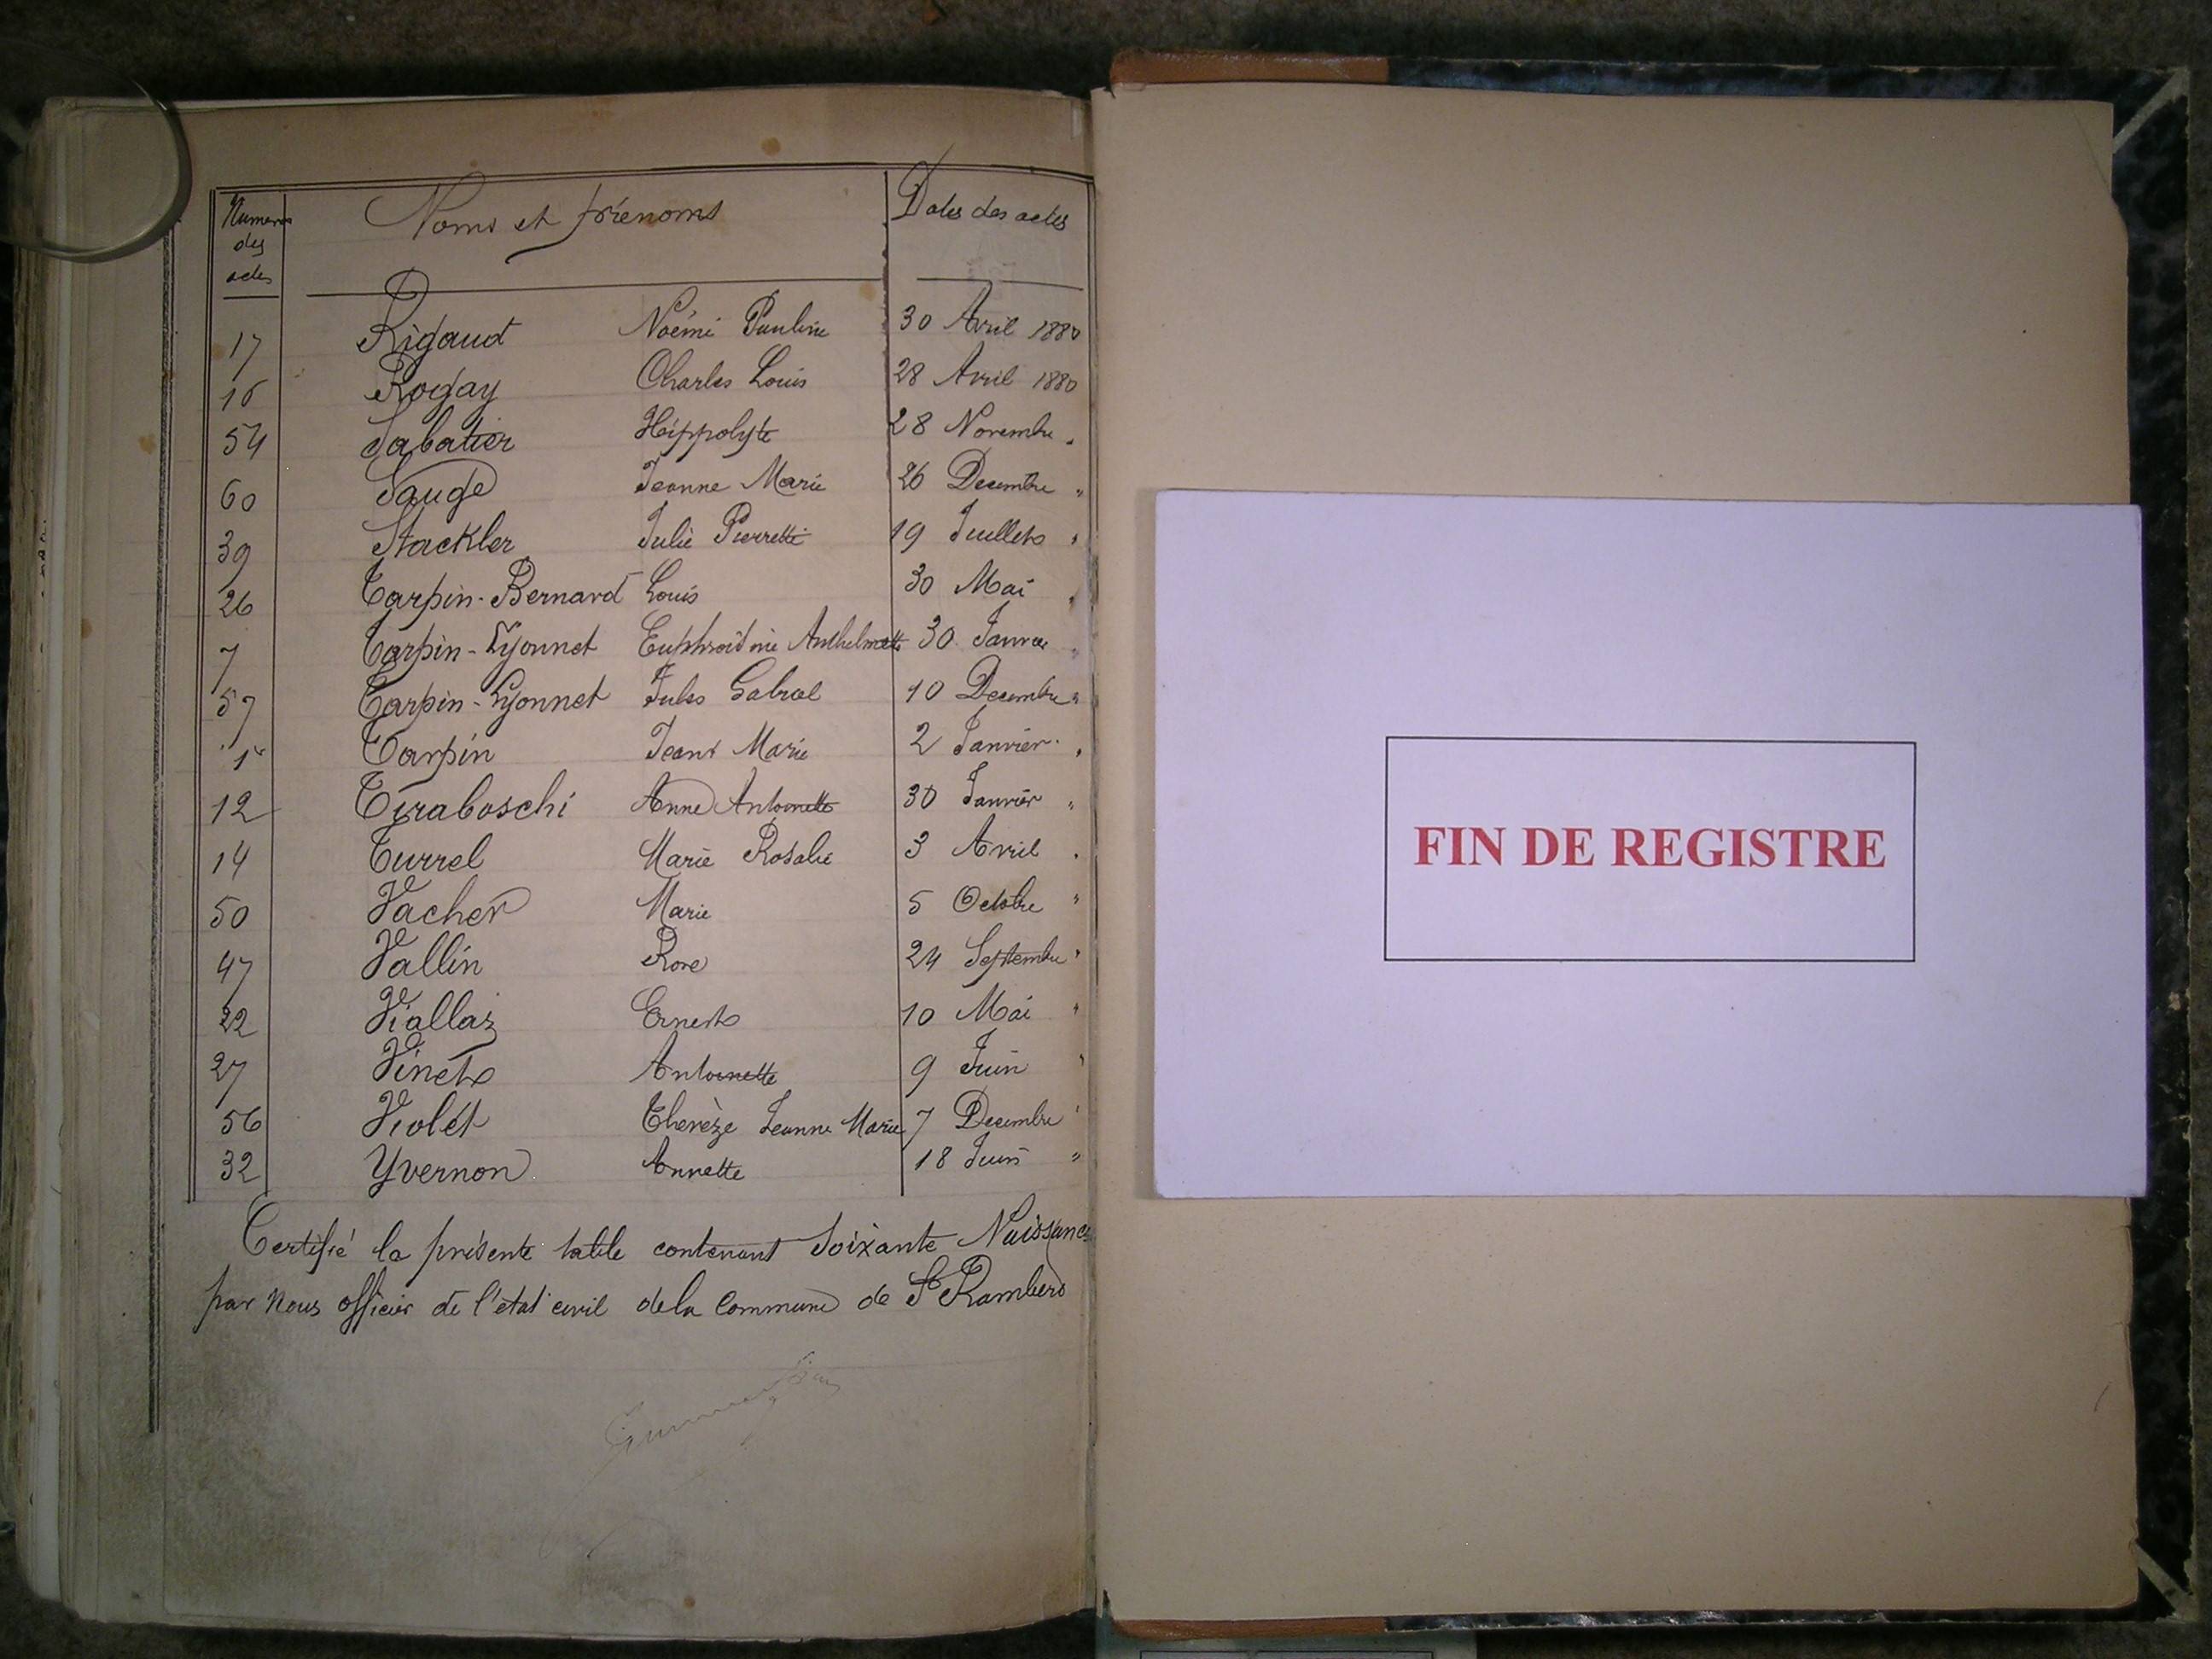 Numeros des actes Noms et prénoms Dates des actes
17 Rigaud Noémi Pauline 30 Avril 1880
16 Rogay Charles Louis 28 Avril 1880
54 Sabatier Hippolyte 28 Novembre "
60 Sauge Jeanne Marie 26 Decembre "
39 Stackler Julie Pierrette 19 Juillet "
26 Carpin-Bernard Louis 30 Mai "
7 Carpin-Lyonnet Anthelmette 30 Janvier "
57 Carpin-Lyonnet Jules Gabriel 10 Decembre "
1er Carpin Jean Marie 2 Janvier "
12 Tiraboschi Anne Antoinette 30 Janvier "
14 Turrel Marie Rosalie 3 Avril "
50 Vacher Marie 5 Octobre "
47 Vallin Rose 24 Septembre "
22 Viallaz Ernest 10 Mai "
27 Vinet Antoinette 9 Juin "
56 Violet Therèze Jeanne Marie 7 Decembre "
32 Yvernon Annette 18 Juin "
Certifié la présente table contenant Soixante Naissances
par nous officier de l'état civil de la Commune de St Rambert
FIN DE REGISTRE